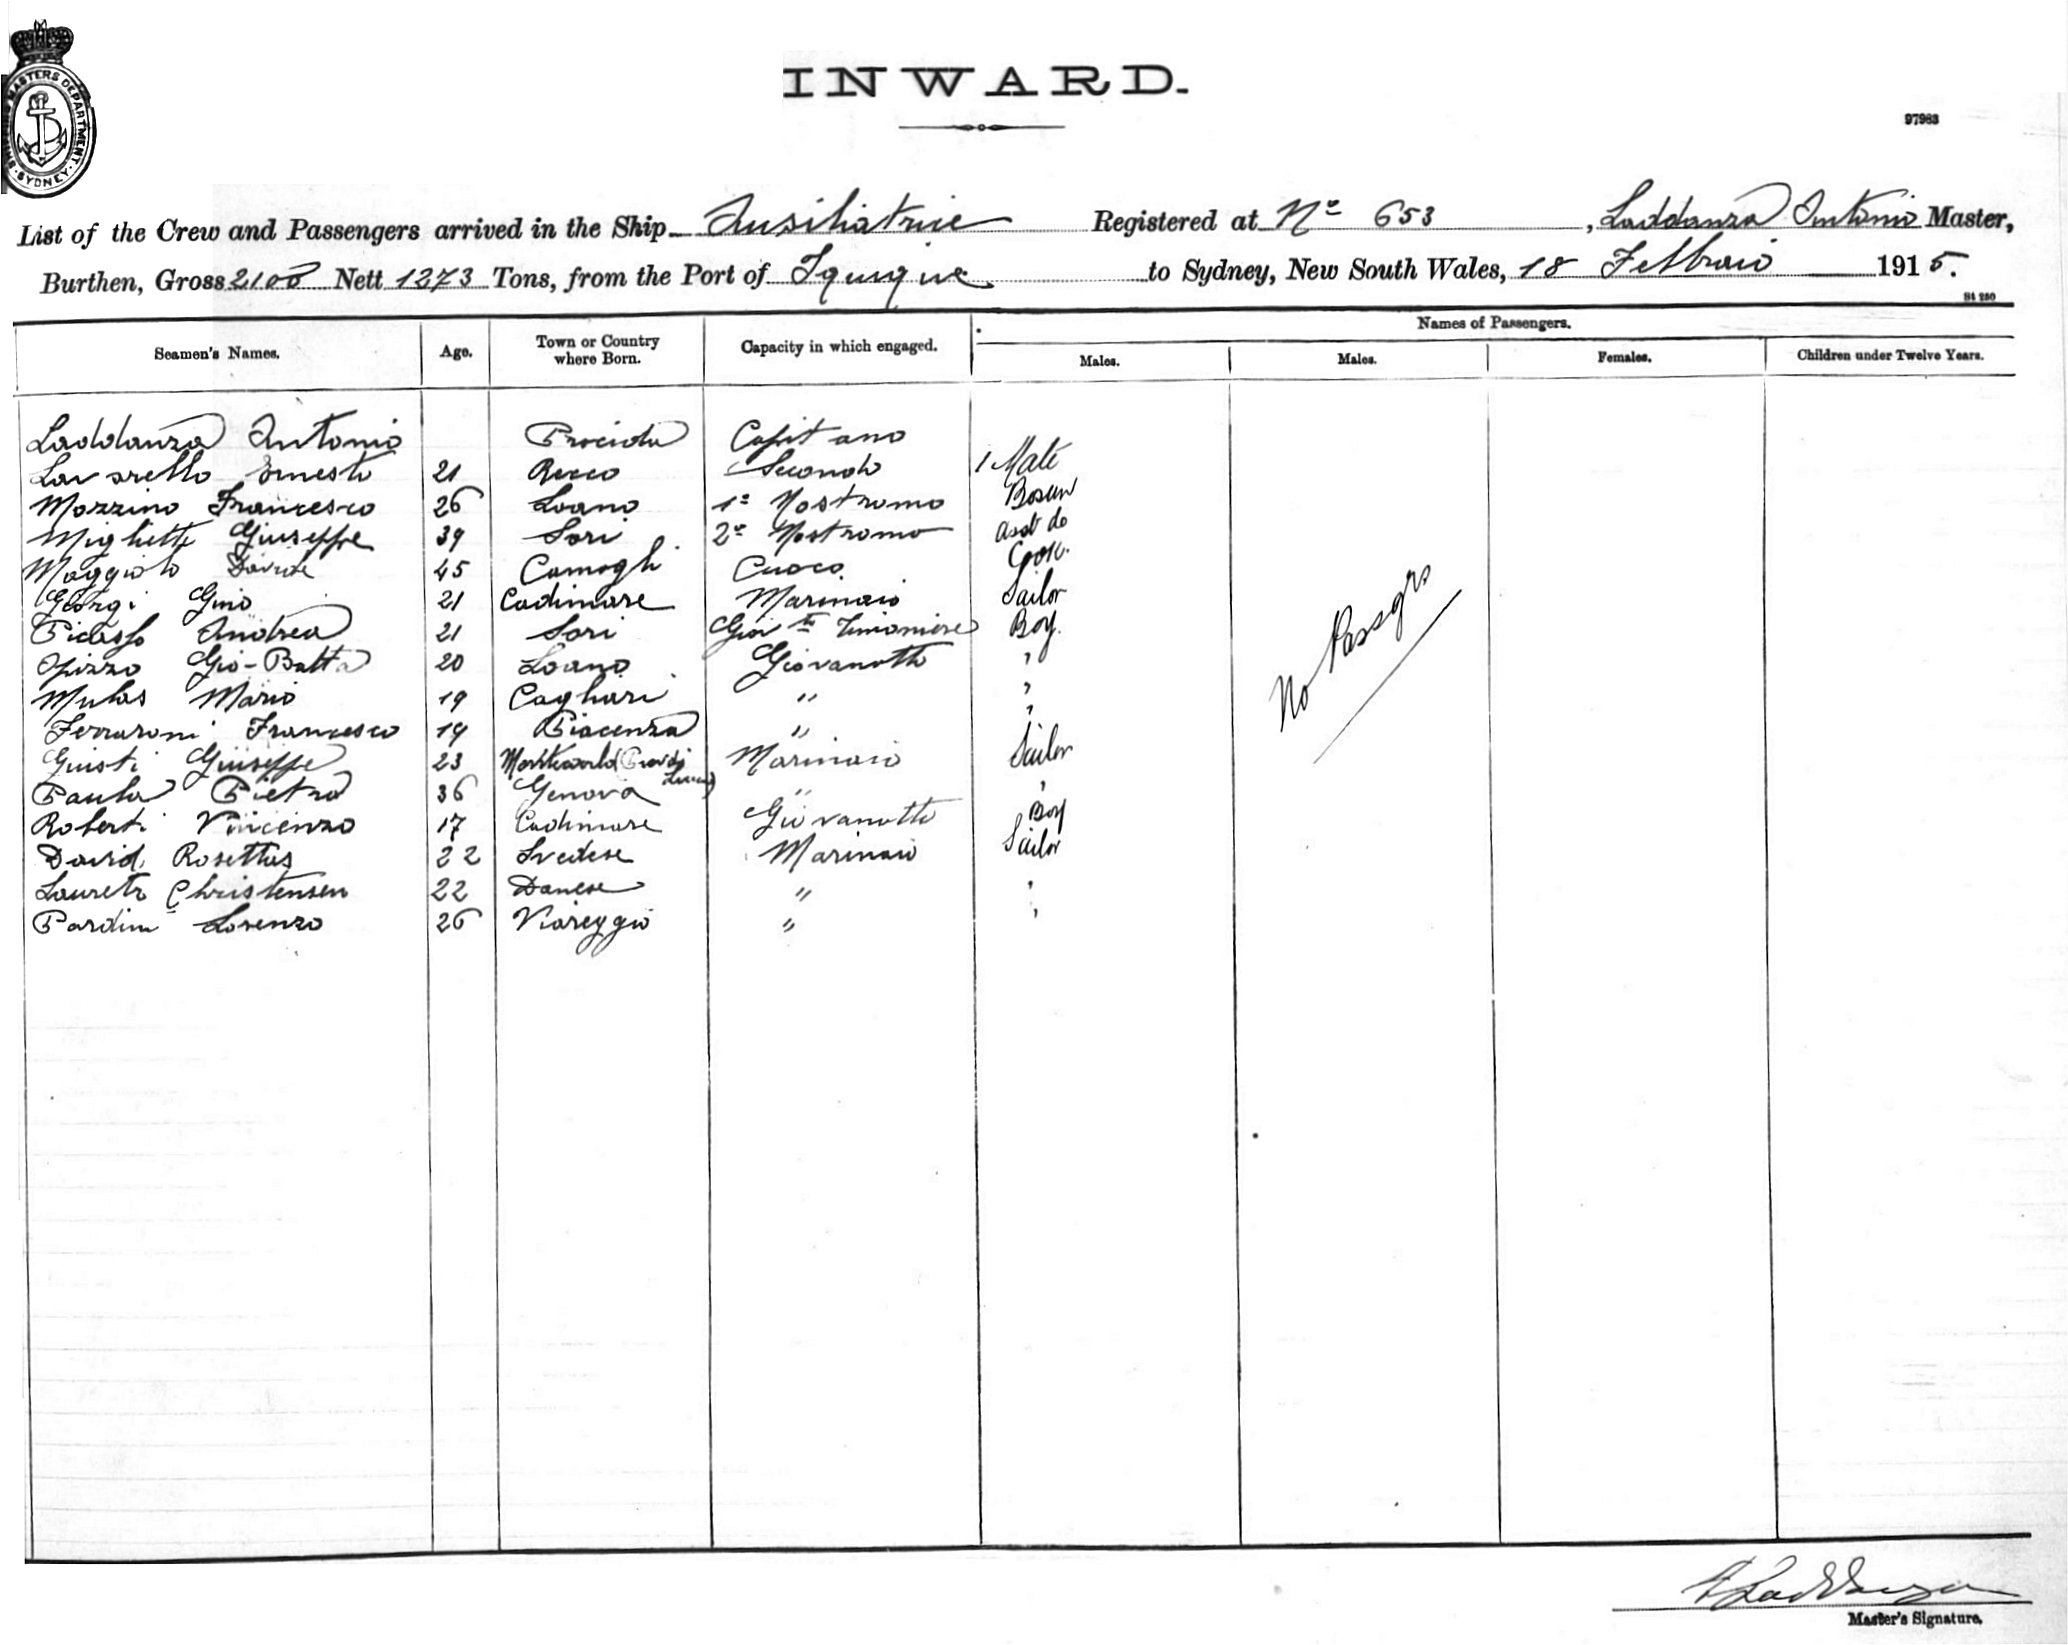 INWARD.
97983
SHIPPING MASTERS DEPARTMENT. SYDNEY.
List of the Crew and Passengers arrived in the Ship Ausiliatrice Registered at No 653, Laddanza Antonio Master,
Burthen, Gross 2100 Nett 1273 Tons, from the Port of Iquique to Sydney, New South Wales, 18 Febbraio 1915.
St 250
Seamen's Names. Age. Town or Country where Born. Capacity in which engaged. Names of Passengers.
Males. Males. Females. Children under Twelve Years.
Laddanza Antonio Procida Capitano
Lavarello Ernesto 21 Recco Secondo 1 Mate
Mozzino Francesco 26 Loano 1º Nostromo Bosun
Miglietti Giuseppe 39 Sori 2º Nostromo Asst do
Maggiolo Davide 45 Camogli Cuoco Cook.
Giorgi Gino 21 Cadimare Marinaio Sailor
Picasso Andrea 21 Sori Giov tto Timoniere Boy.
Opizzo Gio-Batta 20 Loano Giovanotto "
Mulas Mario 19 Cagliari " "
Ferraroni Francesco 19 Piacenza " "
Giusti Giuseppe 23 Marinaio Sailor
Paula Pietro 36 Genova " "
Roberti Vincenzo 17 Cadimare Giovanotto Boy
David Rosettas 22 Svedese Marinaio Sailor
Lauretz Christensen 22 Danese " "
Pardini Lorenzo 26 Viareggio " "
No Passgrs
A Laddanza
Master's Signature.